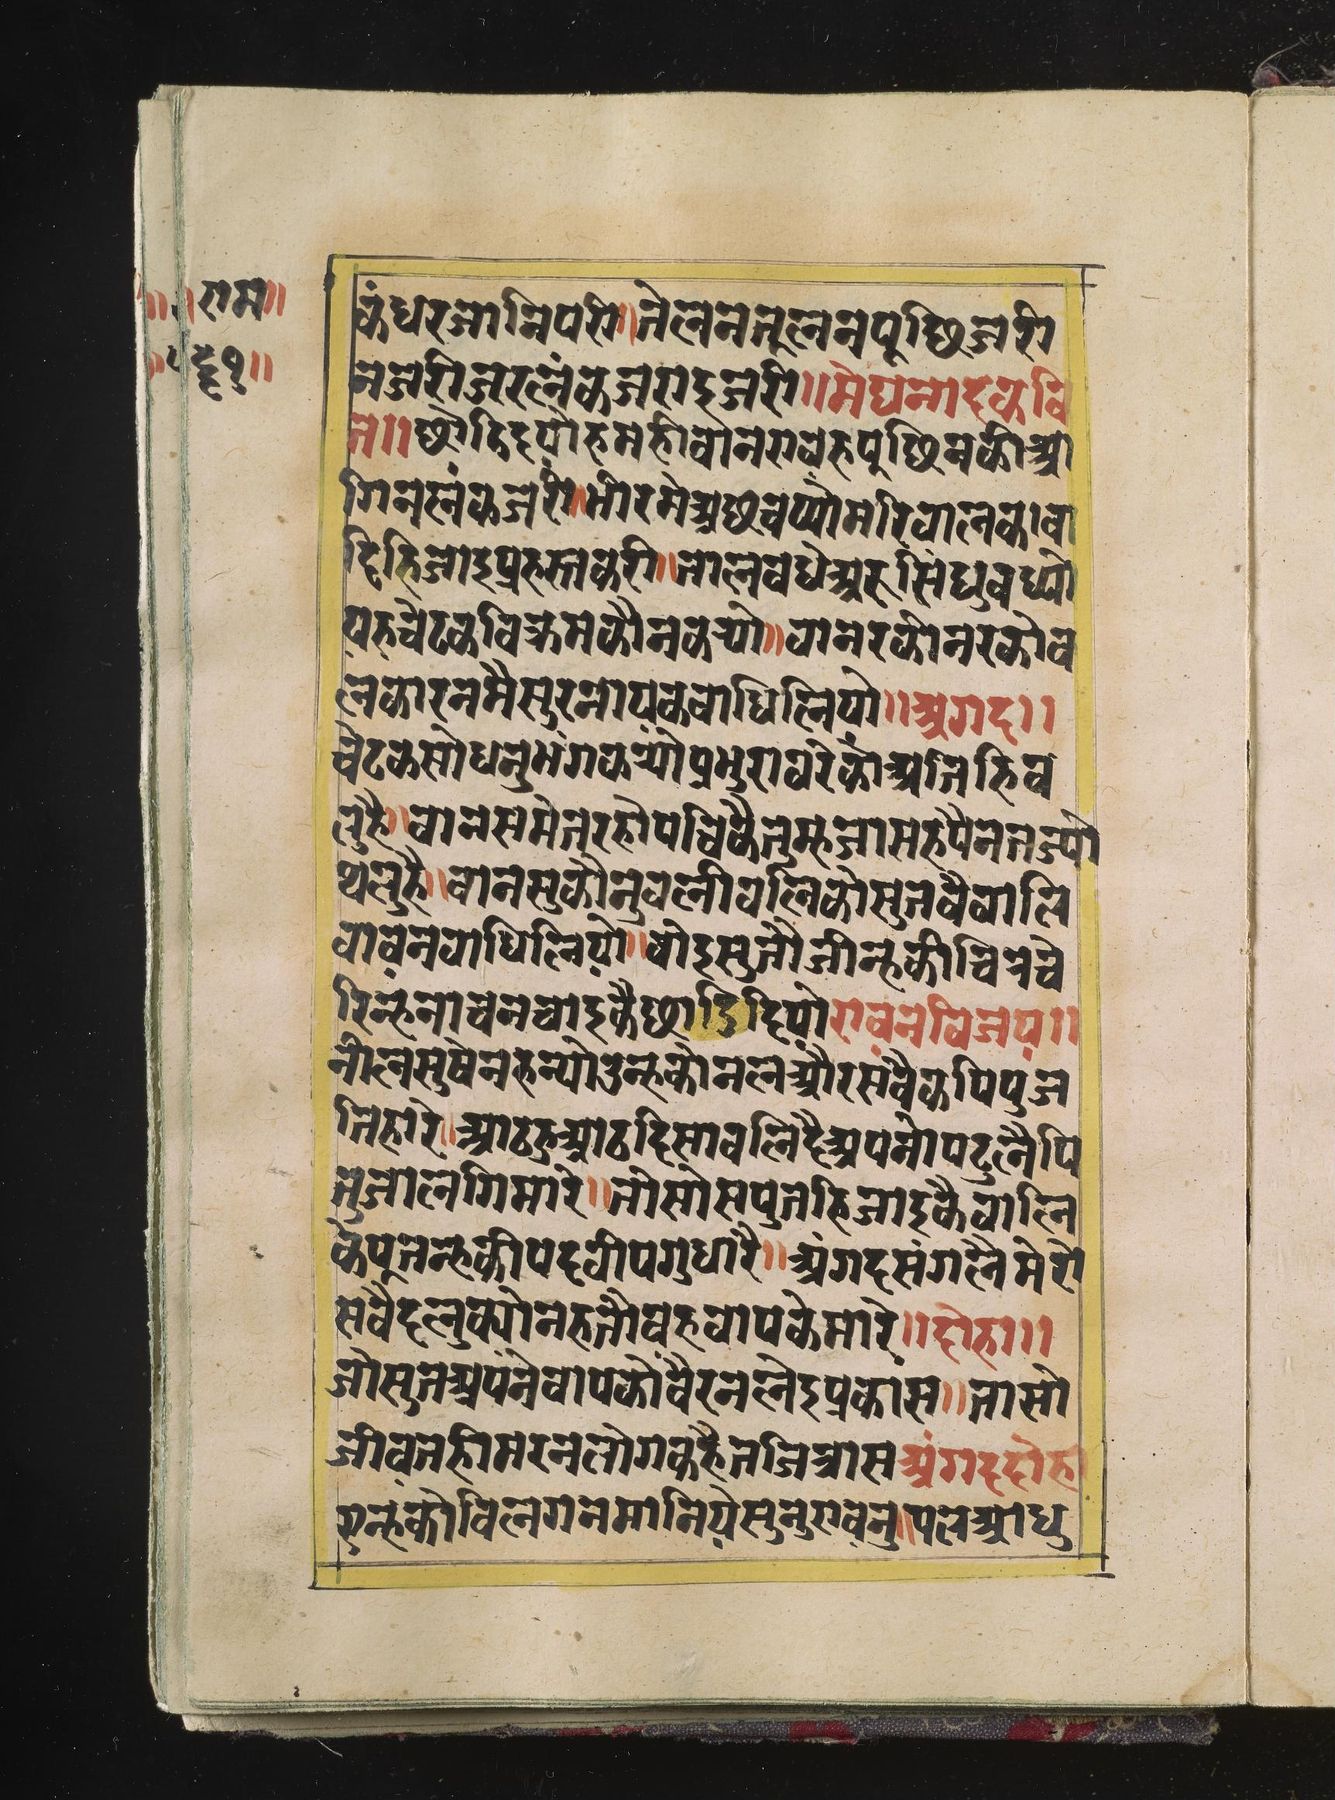 ॥राम॥
६१॥
कंधरजानिपरी॥तेलनतूलनपूछिजरी
नजरीजरलंकजराइजरी॥मेघनादकवि
त॥छोडिदयोहमहीवानरावहपूछिबकीआ
गिनलंकजरी॥भीरमेअछवप्योमरिवालकावा
दिहिजाइप्रहस्तकरी॥तालवधेअरुसिंधुवध्यो
यहचेटकविक्रमकौनकर्‍यो॥वानरकोनरकोव
लकारनमैसुरनायकबाधिलियो॥अगद॥
चेटकसोधनुभंगकर्‍योप्रभुरावरेकोअतिहिव
लुहै॥वानसमेतरहोपचिकैतुम्हजासहपैनतज्यो
थलुहै॥वानसुकौनुवलीवलिकोसुतवैवालि
वावनवाधिलियो॥वोइसुतौजीन्हकीचित्रचे
रिन्हनाचनचाइकैछाडिदियो रावनविजय॥
नीलसुषेनहन्योउन्हकोनलऔरसवैकपिपुज
तिहारे॥आठहुआठदिसावलिदैअपनोपदुलैपि
तुजालगिमारे॥तोसोसपुतहिजाइकैवालि
केपूतन्हकीपदवीपगुधारै॥अंगदसंगलैमेरो
सवैदलुक्योनहतौवहवापकेमारे॥दोहा॥
जोसुतअपनेवापकोवैरनलेइप्रकास॥तासो
जीवतहीमरनलोगकहैतजित्रास अंगददोहा
इन्हकोविलगनमानियेसुनुरावनु॥पलआधु